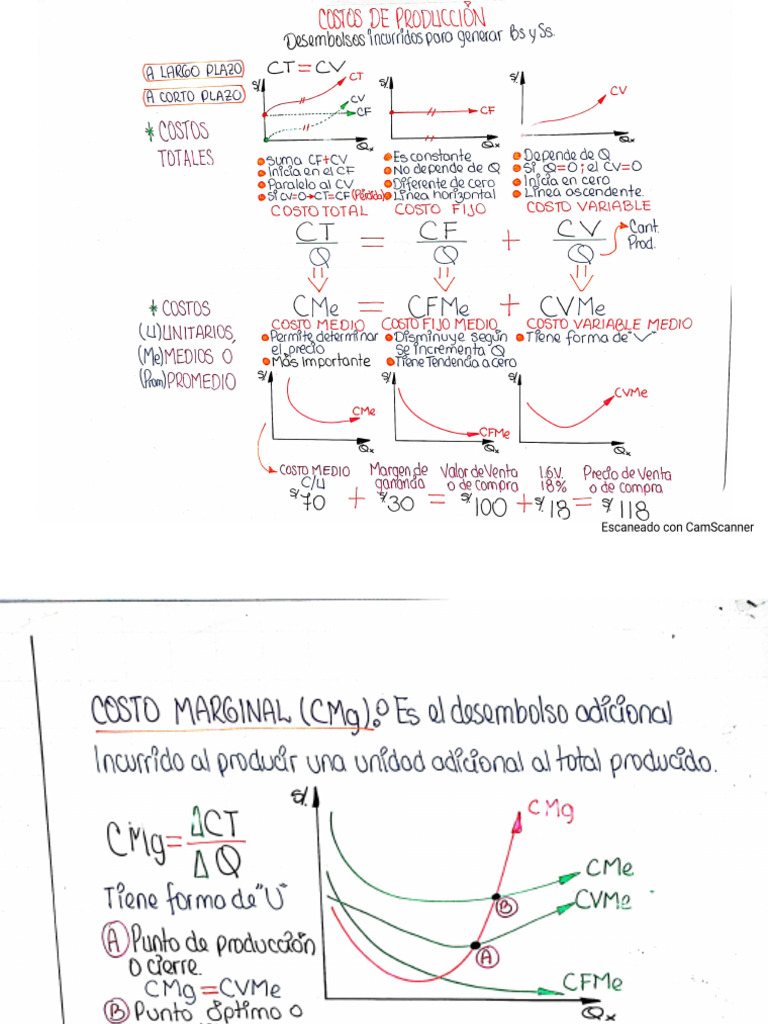 COSTOS DE PRODUCCIÓN
Desembolsos incurridos para generar Bs y Ss.
A LARGO PLAZO
CT = CV
A CORTO PLAZO
* COSTOS
TOTALES
S/.
CT
CV
CF
Qx
S/.
CF
S/.
CV
Qx
Suma CF+CV
Inicia en el CF
Paralelo al CV
Si CV=0→CT=CF (Pérdida)
COSTO TOTAL
Es constante
No depende de Q
Diferente de cero
Línea horizontal
COSTO FIJO
Depende de Q
Si Q=0; el CV=0
Inicia en cero
Línea ascendente.
COSTO VARIABLE
CT/Q = CF/Q + CV/Q
Cant.
Prod.
* COSTOS
(U)UNITARIOS,
(Me)MEDIOS O
(Prom)PROMEDIO
CMe = CFMe + CVMe
COSTO MEDIO
Permite determinar
el precio
Más importante
COSTO FIJO MEDIO
Disminuye según
se incrementa Q
Tiene Tendencia a cero
COSTO VARIABLE MEDIO
Tiene forma de "V"
S/.
CMe
Qx
S/.
CFMe
Qx
S/.
CVMe
Qx
COSTO MEDIO
C/U
S/.70
+
Margen de
ganancia
S/.30
=
Valor de Venta
o de compra
S/.100
+
I.G.V.
18%
S/.18
=
Precio de Venta
o de compra
S/.118
Escaneado con CamScanner
COSTO MARGINAL (CMg): Es el desembolso adicional
Incurrido al producir una unidad adicional al total producido.
CMg = ΔCT/ΔQ
Tiene forma de "U"
A Punto de producción
o cierre.
CMg = CVMe
B Punto óptimo o
S/.
CMg
CMe
CVMe
B
A
CFMe
Qx